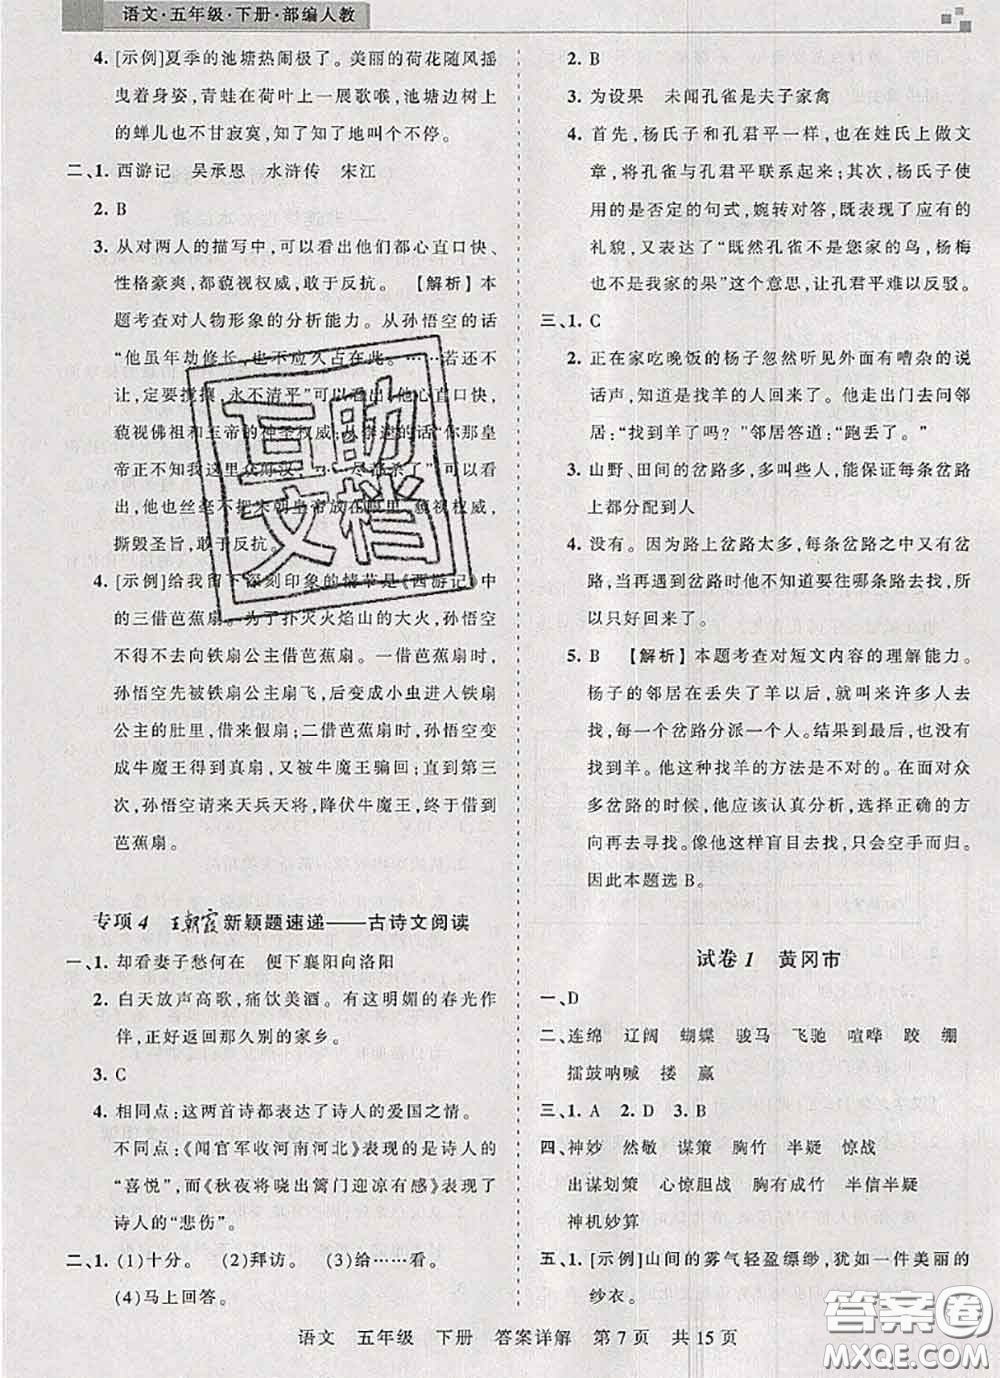 语文·五年级·下册·部编人教
4. [示例]夏季的池塘热闹极了。美丽的荷花随风摇
曳着身姿，青蛙在荷叶上一展歌喉，池塘边大树上
的蝉儿也不甘寂寞，知了知了地叫个不停。
二、1. 西游记 吴承恩 水浒传 宋江
2. B
3. 从对两人的描写中，可以看出他们都心直口快、
性格豪爽，都藐视权威，敢于反抗。 【解析】本
题考查对人物形象的分析能力。从孙悟空的话
“他虽年劫修长，也不应久占在此。……若还不
让，定要搅攘，永不清平”可以看出他心直口快，
藐视佛祖和玉帝的神圣权威；从李逵的话“你那皇
帝正不知我这里众好汉， 尽都杀了”可以
看出，他也丝毫不把宋朝皇帝放在眼里，藐视权威，
撕毁圣旨，敢于反抗。
4. [示例]给我留下深刻印象的情节是《西游记》中
的三借芭蕉扇。为了扑灭火焰山的大火，孙悟空
不得不去向铁扇公主借芭蕉扇。一借芭蕉扇，
孙悟空先被铁扇公主扇飞，后变成小虫进入铁扇
公主的肚里，借来假扇；二借芭蕉扇，孙悟空变
成牛魔王得到真扇，又被牛魔王骗回；直到第三
次，孙悟空请来天兵天将，降伏牛魔王，终于借到
芭蕉扇。
专项4 王朝霞新颖题速递——古诗文阅读
一、1. 却看妻子愁何在 便下襄阳向洛阳
2. 白天放声高歌，痛饮美酒。有这明媚的春光作
伴，正好返回那久别的家乡。
3. C
4. 相同点：这两首诗都表达了诗人的爱国之情。
不同点：《闻官军收河南河北》表现的是诗人的
“喜悦”，而《秋夜将晓出篱门迎凉有感》表现了
诗人的“悲伤”。
二、1. (1)十分。 (2)拜访。 (3)给……看。
(4)马上回答。
2. B
3. 为设果 未闻孔雀是夫子家禽
4. 首先，杨氏子和孔君平一样，也在姓氏上做文
章，将孔雀与孔君平联系起来；其次，杨氏子使
用的是否定的句式，婉转对答，既表现了应有的
礼貌，又表达了“既然孔雀不是您家的鸟，杨梅
也不是我家的果”这个意思，让孔君平难以反驳。
三、1. C
2. 正在家吃晚饭的杨子忽然听见外面有嘈杂的说
话声，知道是找羊的人回来了。他走出门去问邻
居：“找到羊了吗？”邻居答道：“跑丢了。”
3. 山野、田间的岔路多，多叫些人，能保证每条岔路
上都分配到人
4. 没有。因为路上岔路太多，每条岔路之中又有岔
路，当再遇到岔路时他不知道要往哪条路去找，所
以只好回来了。
5. B 【解析】本题考查对短文内容的理解能力。
杨子的邻居在丢失了羊以后，就叫来许多人去
找羊，并给每一个岔路分派一个人。结果还是没
有找到羊。他这种找羊的方法是不对的。在面对众
多岔路的时候，他应该认真分析，选择正确的方
向再去寻找。像他这样盲目去找，只会空手而归。
因此本题选B。
试卷1 黄冈市
一、D
二、连绵 辽阔 蝴蝶 骏马 飞驰 喧哗 跤 绷
擂鼓呐喊 搂 赢
三、1. A 2. D 3. B
四、神妙 然敬 谋策 胸竹 半疑 惊战
出谋划策 心惊胆战 胸有成竹 半信半疑
神机妙算
五、1. [示例]山间的雾气轻盈缥缈，犹如一件美丽的
纱衣。
语文 五年级 下册 答案详解 第7页 共15页
互助
文档
答案圈
MXQE.COM